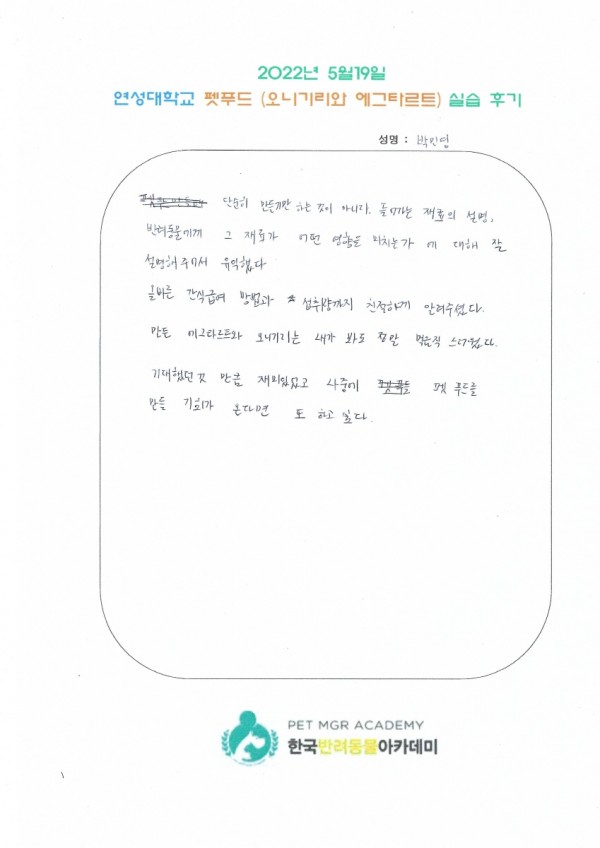 2022년 5월19일
연성대학교 펫푸드 (오니기리와 에그타르트) 실습 후기
성명 : 박민영
단순히 만들기만 하는 것이 아니라. 들어가는 재료의 설명,
반려동물에게 그 재료가 어떤 영향을 미치는가 에 대해 잘
설명해 주셔서 유익했다
올바른 간식급여 방법과 섭취량까지 친절하게 알려주셨다.
만든 에그타르트와 오니기리는 내가 봐도 정말 먹음직 스러웠다.
기대했던 것 만큼 재미있었고 나중에 펫 푸드를
만들 기회가 온다면 또 하고 싶다.
PET MGR ACADEMY
한국반려동물아카데미